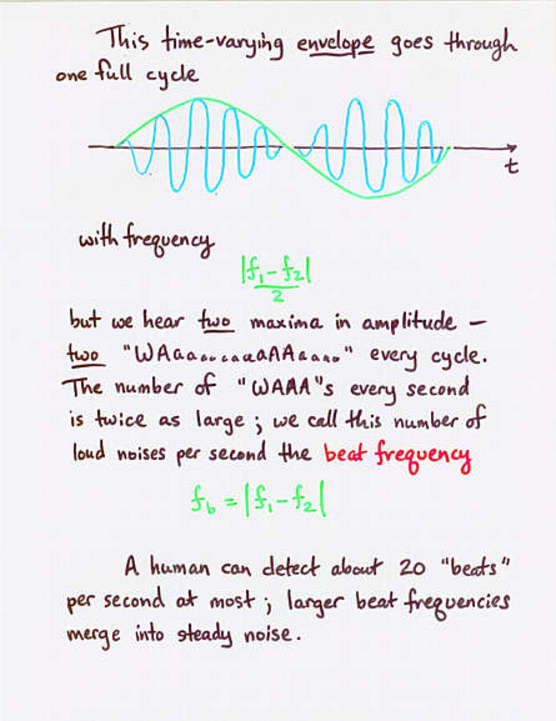 This time-varying envelope goes through
one full cycle
t
with frequency
|f₁-f₂|
2
but we hear two maxima in amplitude —
two "WAaaaaaaaAAaaaa" every cycle.
The number of "WAAA"s every second
is twice as large ; we call this number of
loud noises per second the beat frequency
f_b = |f₁-f₂|
A human can detect about 20 "beats"
per second at most ; larger beat frequencies
merge into steady noise.